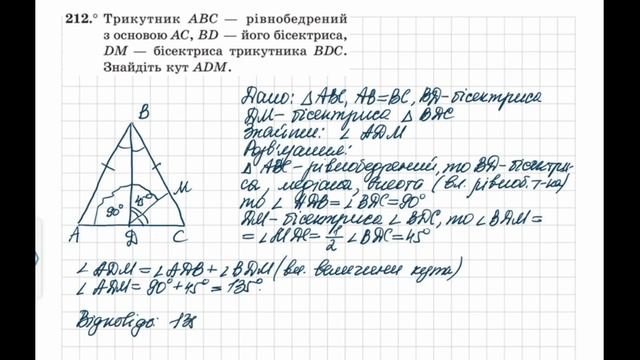 212.° Трикутник ABC — рівнобедрений
з основою AC, BD — його бісектриса,
DM — бісектриса трикутника BDC.
Знайдіть кут ADM.
Дано: △ ABC, AB=BC, BD-бісектриса
DM-бісектриса △ BDC
Знайти: ∠ ADM
Розв'язання:
△ ABC-рівнобедрений, то BD-бісектри-
са, медіана, висота (вл. рівноб. т-ка)
то ∠ ADB=∠BDC=90°
DM-бісектриса ∠BDC, то ∠BDM=
=∠MDC=½∠BDC=45°
B
M
90°
45°
A
D
C
∠ADM=∠ADB+∠BDM (вл. величини кута)
∠ADM=90°+45°=135°.
Відповідь: 135